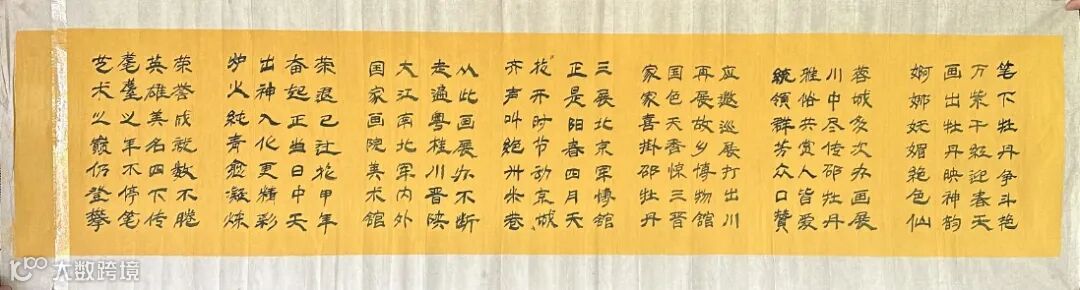 笔下牡丹争斗艳
万紫千红迎春天
画出牡丹映神韵
婀娜妩媚绝色仙
蓉城多次办画展
川中尽传邵牡丹
雅俗共赏人皆爱
统领群芳众口赞
应邀巡展打出川
再展故乡博物馆
国色天香惊三晋
家家喜挂邵牡丹
三展北京军博馆
正是阳春四月天
花开时节动京城
齐声叫绝卅米卷
从此画展办不断
走遍粤桂川晋陕
大江南北军内外
国家画院美术馆
荣退已过花甲年
奋起正当日中天
出神入化更精彩
炉火纯青愈凝炼
荣誉成就数不胜
英雄美名四下传
耄耋之年不停笔
艺术之巅仍登攀
大数跨境